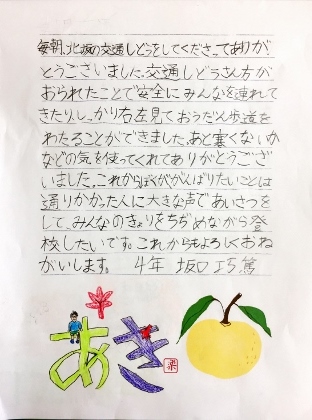 毎朝、北坂の交通しどうをしてくださってありが
とうございました。交通しどうさん方が
おられたことで安全にみんなを連れて
きたり、しっかり右左見ておうだん歩道を
わたることができました。あと寒くないか
などの気を使ってくれてありがとうござ
いました。これからぼくががんばりたいことは
通りかかった人に大きな声であいさつを
して、みんなのきょりをちぢめながら登
校したいです。これからもよろしくおね
がいします。 4年 坂口巧篤
あき